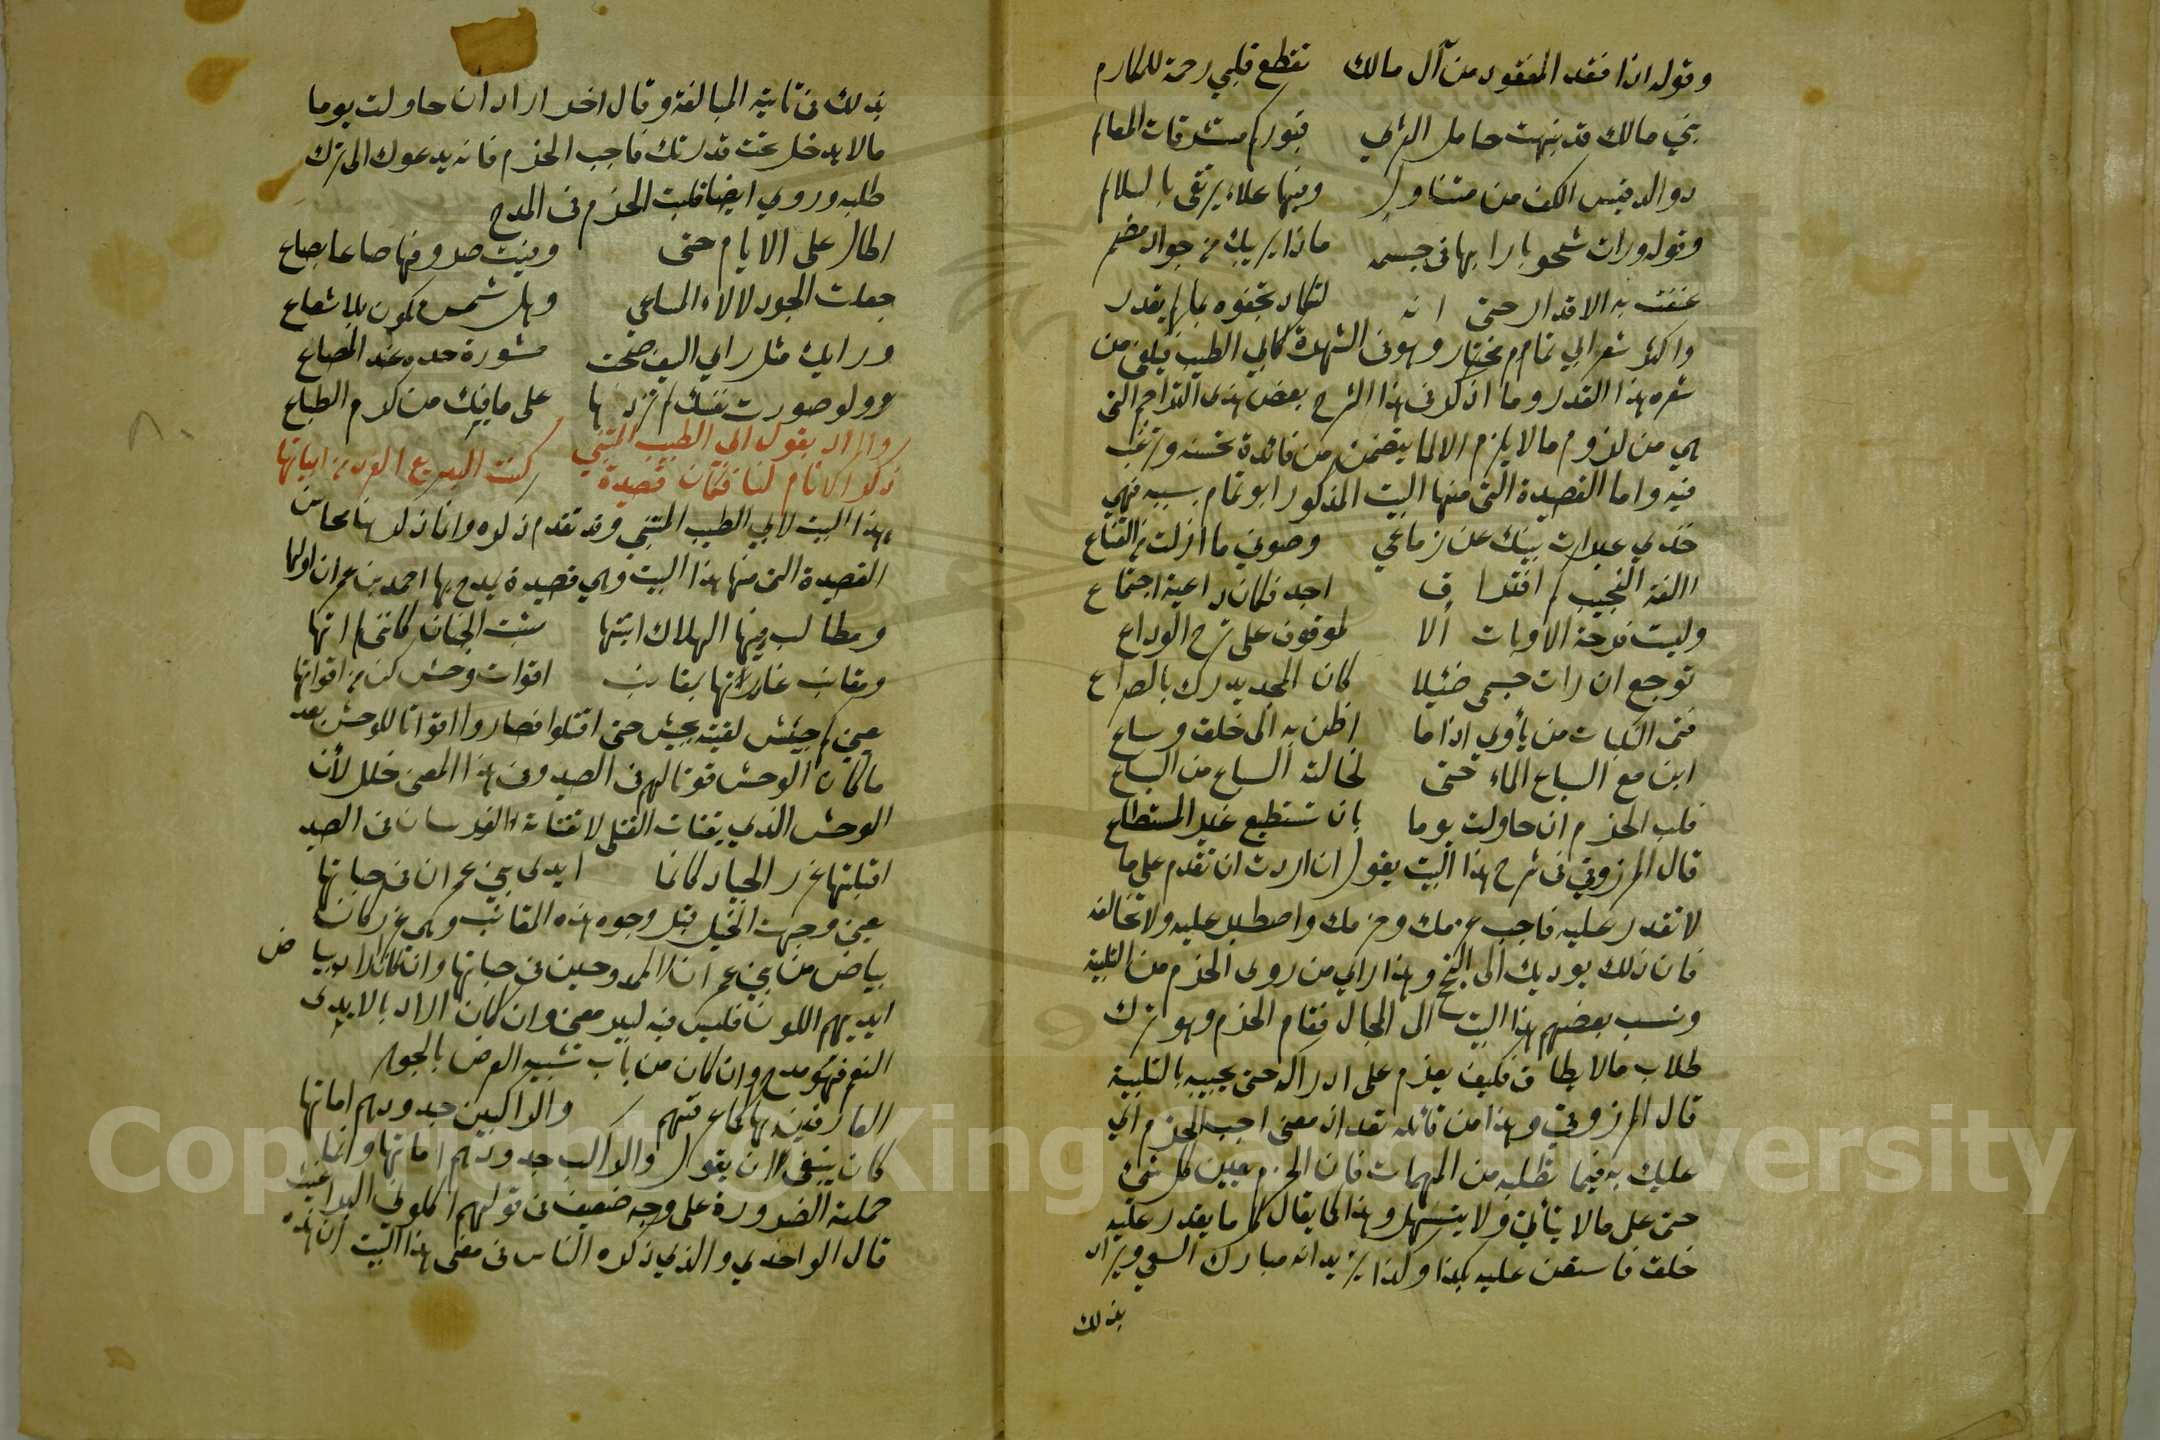 وقوله اذا فقد المفقود من آل مالك تقطع قلبي رحمة للمكارم
بني مالك قد نبهت خامل الثرى قبور لكم مستشرفات المعالم
رواكد قيس الكف من متناول وفيها علاء يرتقى بالسلالم
وقوله ورات شحوبا رابها في جسمه ماذا يريبك من جواد مضمر
عنفت به الاقدار حتى انه لتكاد تجفوه بما لم يقدر
واكثر شعر ابي تمام مختار وهو في الشهرة كابي الطيب فيكفي من
شعره هذا القدر وما اذكر في هذا الشرح بعض هذي التراجم التي
هي من لزوم ما لا يلزم الا لما يتضمن من فائدة تحسنه وترغب
فيه واما القصيدة التي منها البيت المذكور ابو تمام بسببه فهي
خذي عبرات بينك عن زماعي وصوني ما ازلت من القناع
االفة النحيب كم افتراق اجد فكان داعية اجتماع
وليست فرحة الاوبات الا لموقوف على ترح الوداع
توجع ان رات جسمي ضئيلا كان المجد يدرك بالصراع
فتى النكبات من يأوي اذا ما اظفن به الى خلق وساع
ابن مع السباع الماء حتى لخالته السباع من السباع
فلب الحزم ان حاولت يوما بان تستطيع غير المستطاع
قال المرزوقي في شرح هذا البيت يقول ان اردت ان تقدم على ما
لا تقدر عليه فاجب عزمك وحزمك واصطبر عليه ولا تخالفه
فان ذلك يوديك الى النجح وهذا راي من روى الحزم من التلبية
ونسب بعضهم هذا البيت الى المحال فقام الحزم وهو ترك
طلاب ما لا يطاق فكيف يعزم على ادراكه حتى يجيبه بالتلبية
قال المرزوقي وهذا من قائله تعد ان معنى اجب الحزم اي
عليك به فيما تطلبه من المهمات فان الحزم يعين كل شيء
حتى على ما لا يتأتى ولا يتسهل وهذا كما يقال كل ما يقدر عليه
خلق فاستعن عليه بكذا وكذا يزيد انه مبارك السعي ويراد
بذلك
بذلك في ثانيه المبالغة وقال اخر اراد ان حاولت يوما
ما لا يدخل تحت قدرتك فاجب الحزم فانه يدعوك الى ترك
طلبه وروي ايضا فلبت الحزم في المدح
اطال على الايام حتى وفيت صروفها صاعا بصاع
جعلت الجود لالاء المساعي وهل شمس تكون بلا شعاع
ورايك مثل راي السيف صحت مشورة حده عند المصاع
ولو صورت نفسك لم تزدها على ما فيك من كرم الطباع
واراد بقول ابي الطيب المتنبي
ذكر الانام لنا فكان قصيدة كنت البديع الفرد من ابياتها
هذا البيت لابي الطيب المتنبي وقد تقدم ذكره وانا ذاكر هنا محاسن
القصيدة التي منها هذا البيت وهي قصيدة يمدح بها احمد بن عمران اولها
ومطالب فيها الهلاك اتيتها ثبت الجنان كانني لم اتها
ومقانب بمقانب غادرتها اقوات وحش كن من اقواتها
يعني كم جيش لقيته بجيش حتى اقتلوا فصاروا اقواتا للوحش بعد
ما كان الوحش قوتا لهم في الصيد وفي هذا المعنى خلل لأن
الوحش الذي يقتات القتلى لا تقتاته الفرسان في الصيد
اقبلتها غرر الجياد كانما ايدي بني عمران في جبهاتها
يعني وجهت الخيل قبل وجوه هذه المقانب وهي غر كان
بياض من بني عمران الممدوحين في جبهاتها وان كان المراد ببياض
ايديهم اللون فليس فيه كبير معنى وان كان المراد بالايدي
النعم فهو مدح وان كان من باب تشبيه العرض بالجوهر
العارفين بها كما عرفتهم والراكبين جدودهم اماتها
كان ينبغي ان يقول والراكب جدودهم اماتها وانما
حملته الضرورة على وجه ضعيف في قولهم اكلوني البراغيث
قال الواحدي والذي ذكره الناس في معنى هذا البيت ان هذه
Copyright © King Saud University